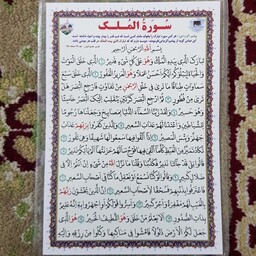 سُورَةُ المُلك
بِسْمِ اللهِ الرَّحْمنِ الرَّحِيمِ
تَبارَكَ الَّذِي بِيَدِهِ المُلْكُ وَهُوَ عَلى كُلِّ شَيْءٍ قَدِيرٌ ﴿١﴾ الَّذِي خَلَقَ المَوْتَ
وَالحَياةَ لِيَبْلُوَكُمْ أَيُّكُمْ أَحْسَنُ عَمَلاً وَهُوَ العَزِيزُ الغَفُورُ ﴿٢﴾ الَّذِي خَلَقَ سَبْعَ
سَماواتٍ طِباقاً ما تَرى فِي خَلْقِ الرَّحْمنِ مِنْ تَفاوُتٍ فَارْجِعِ البَصَرَ هَلْ
تَرى مِنْ فُطُورٍ ﴿٣﴾ ثُمَّ ارْجِعِ البَصَرَ كَرَّتَيْنِ يَنْقَلِبْ إِلَيْكَ البَصَرُ خاسِئاً
وَهُوَ حَسِيرٌ ﴿٤﴾ وَلَقَدْ زَيَّنَّا السَّماءَ الدُّنْيا بِمَصابِيحَ وَجَعَلْناها رُجُوماً
لِلشَّياطِينِ وَأَعْتَدْنا لَهُمْ عَذابَ السَّعِيرِ ﴿٥﴾ وَلِلَّذِينَ كَفَرُوا بِرَبِّهِمْ عَذابُ
جَهَنَّمَ وَبِئْسَ المَصِيرُ ﴿٦﴾ إِذا أُلْقُوا فِيها سَمِعُوا لَها شَهِيقاً وَهِيَ تَفُورُ ﴿٧﴾
تَكادُ تَمَيَّزُ مِنَ الغَيْظِ كُلَّما أُلْقِيَ فِيها فَوْجٌ سَأَلَهُمْ خَزَنَتُها أَلَمْ يَأْتِكُمْ نَذِيرٌ ﴿٨﴾
قالُوا بَلى قَدْ جاءَنا نَذِيرٌ فَكَذَّبْنا وَقُلْنا ما نَزَّلَ اللهُ مِنْ شَيْءٍ إِنْ أَنْتُمْ إِلاَّ فِي
ضَلالٍ كَبِيرٍ ﴿٩﴾ وَقالُوا لَوْ كُنَّا نَسْمَعُ أَوْ نَعْقِلُ ما كُنَّا فِي أَصْحابِ السَّعِيرِ ﴿١٠﴾
فَاعْتَرَفُوا بِذَنْبِهِمْ فَسُحْقاً لِأَصْحابِ السَّعِيرِ ﴿١١﴾ إِنَّ الَّذِينَ يَخْشَوْنَ رَبَّهُمْ
بِالغَيْبِ لَهُمْ مَغْفِرَةٌ وَأَجْرٌ كَبِيرٌ ﴿١٢﴾ وَأَسِرُّوا قَوْلَكُمْ أَوِ اجْهَرُوا بِهِ إِنَّهُ عَلِيمٌ
بِذاتِ الصُّدُورِ ﴿١٣﴾ أَلا يَعْلَمُ مَنْ خَلَقَ وَهُوَ اللَّطِيفُ الخَبِيرُ ﴿١٤﴾ هُوَ الَّذِي
جَعَلَ لَكُمُ الأَرْضَ ذَلُولاً فَامْشُوا فِي مَناكِبِها وَكُلُوا مِنْ رِزْقِهِ وَإِلَيْهِ